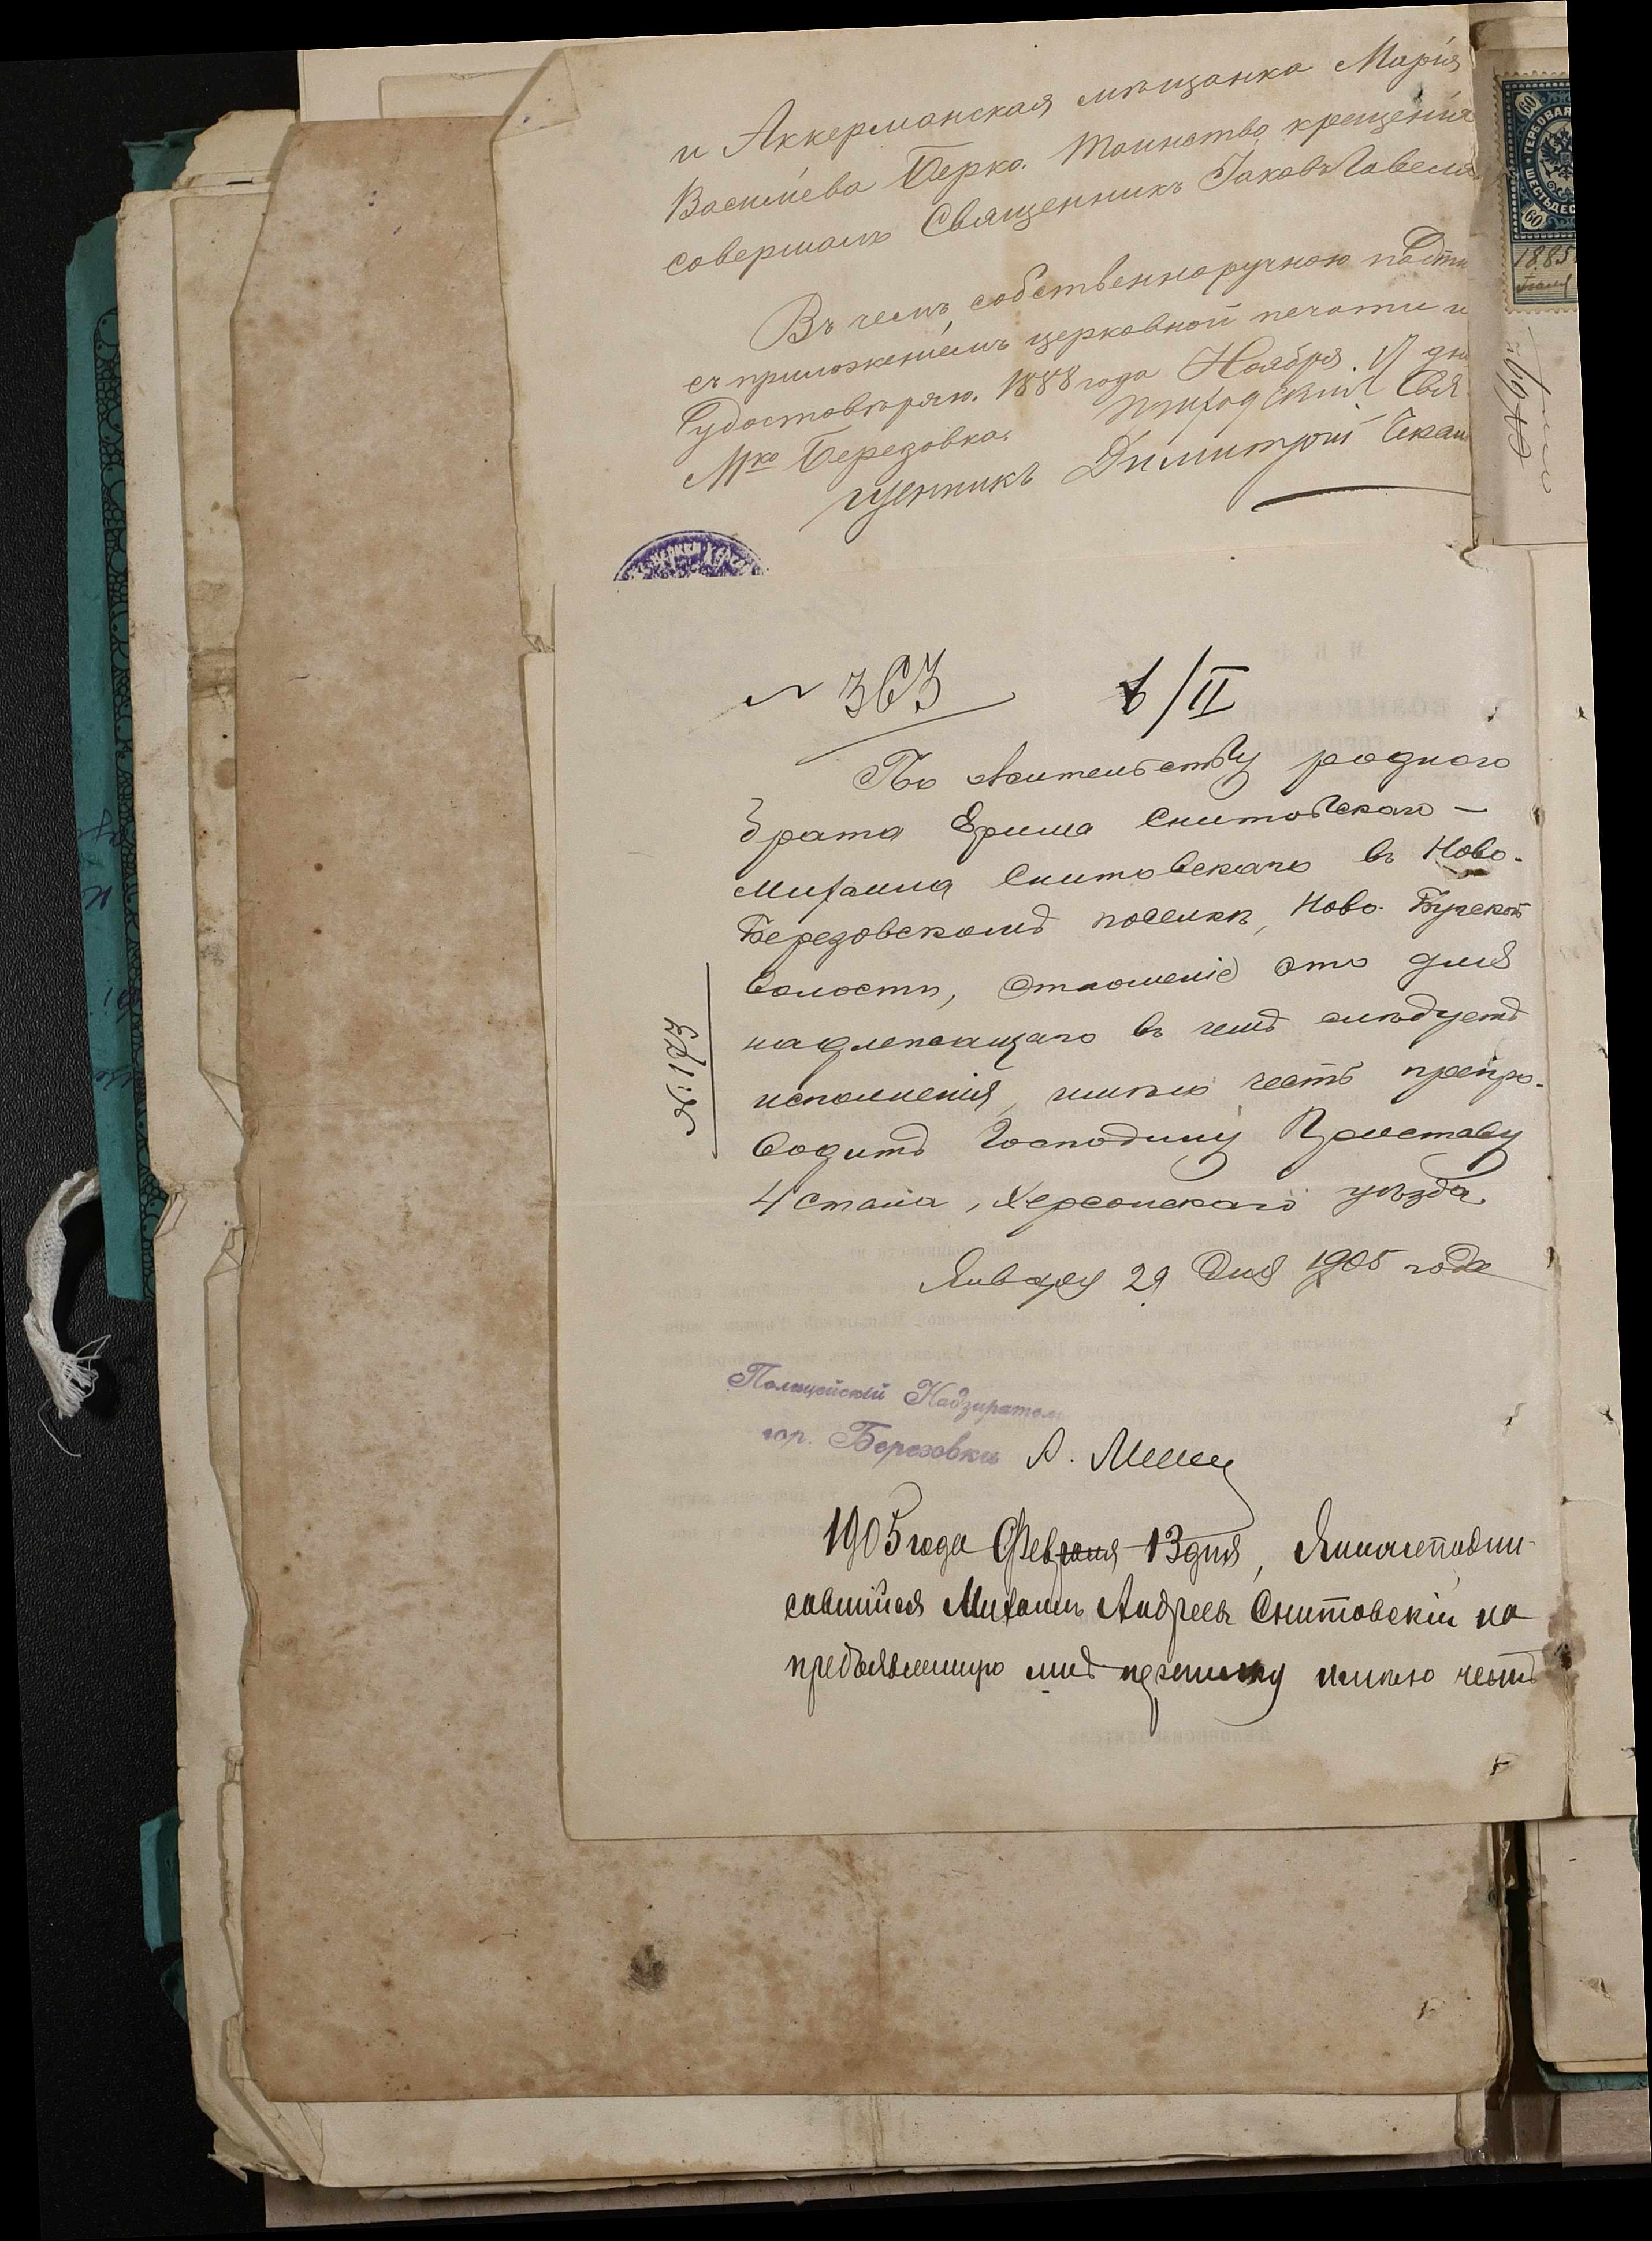 и Аккерманская мѣщанка Марія
Василіева Берко. Таинство крещенія
совершалъ Священникъ Іаковъ Павел
Въ чемъ собственноручною подпи
съ приложеніемъ церковной печати и
удостовѣряю. 1888 года Ноября 17 дн
Мко Березовка. Приходскій Свя
щенникъ Димитрій Чекан
ГЕРБОВАЯ
60
60
1885
№ 363 6/II
По жительству роднаго
брата Ефима Снитовскаго —
Михаила Снитовскаго въ Ново-
Березовскомъ поселкѣ, Ново-Бугской
волости, отношеніе это для
надлежащаго въ чемъ слѣдуетъ
исполненія, имѣю честь препро-
водить Господину Приставу
4 стана, Херсонскаго уѣзда.
Января 29 дня 1905 года
№ 173
Полицейскій Надзиратель
гор. Березовки А.
1905 года Февраля 13 дня, Я нижеподпи-
савшійся Михаилъ Андреевъ Снитовскій на
предъявленную мнѣ переписку имѣю честь